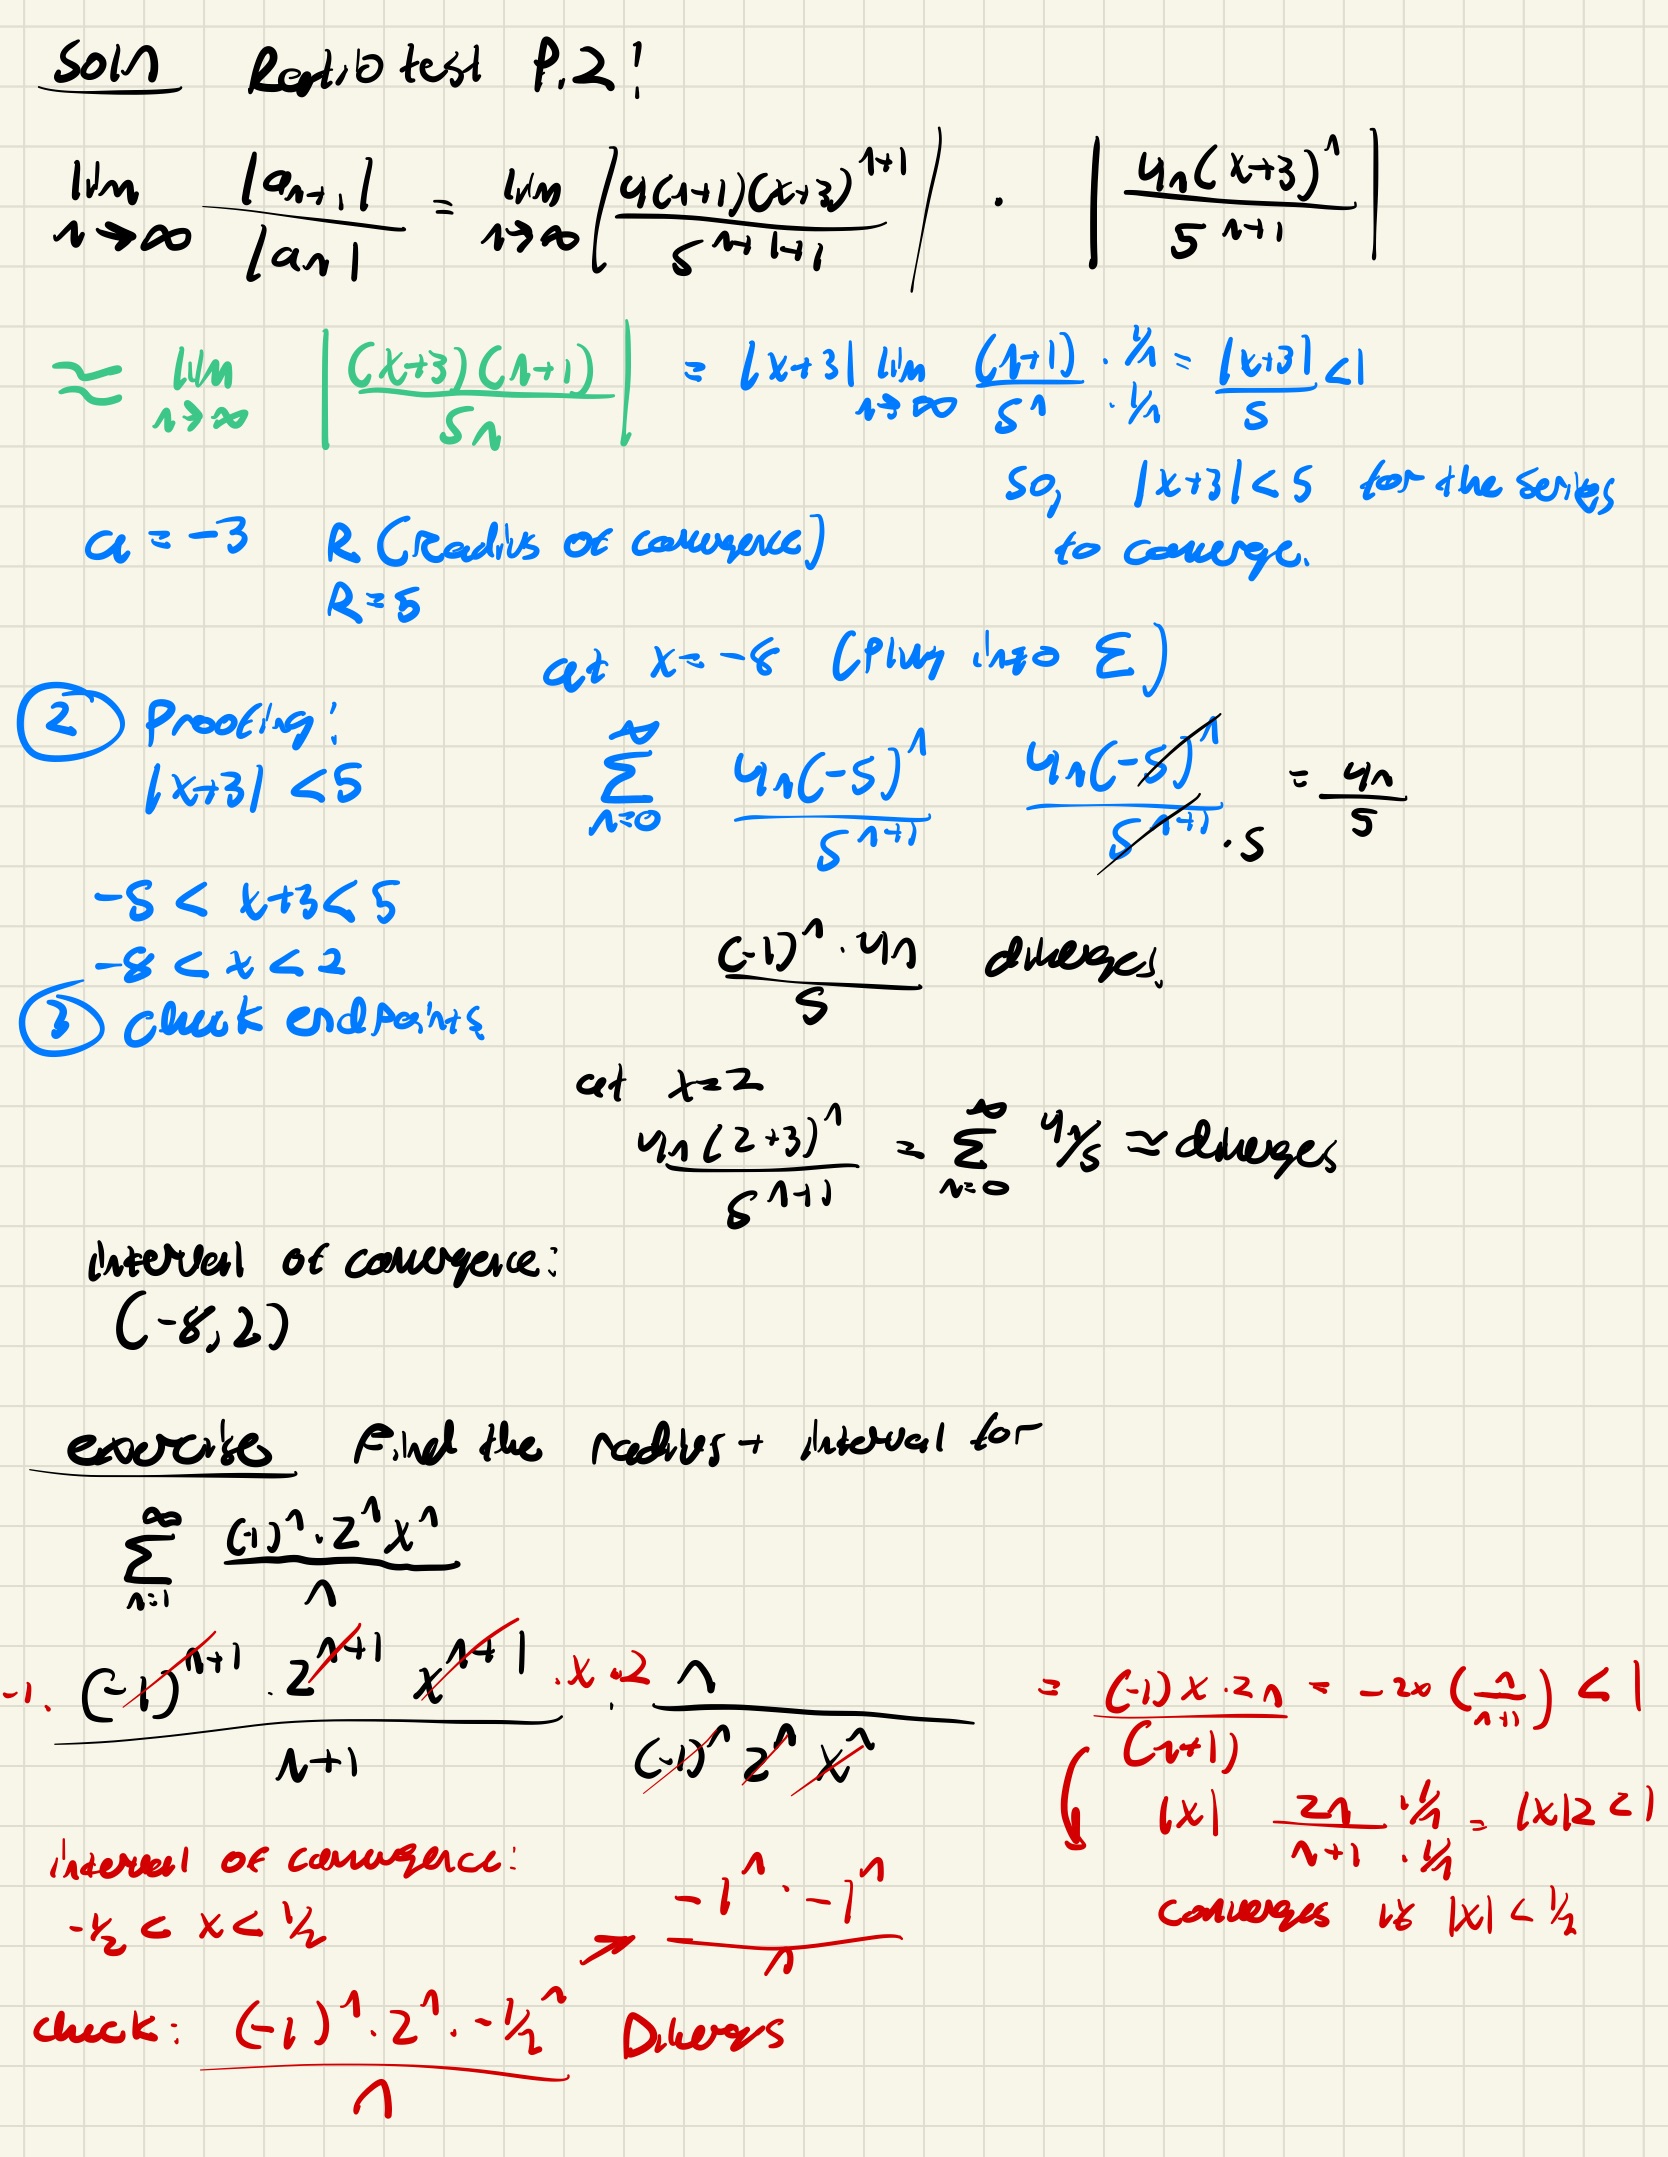 Soln Ratio test P.2!
lim n→∞ |aₙ₊₁| / |aₙ| = lim n→∞ |4(n+1)(x+3)^(n+1) / 5^(n+1+1)| · |4n(x+3)^n / 5^(n+1)|
≈ lim n→∞ |(x+3)(n+1) / 5n| = |x+3| lim n→∞ (n+1)/5n · 1/n / · 1/n = |x+3|/5 < 1
so, |x+3| < 5 for the series
to converge.
a = -3 R (Radius of convergence)
R = 5
at x = -8 (Plug into Σ)
② Proofing:
|x+3| < 5
∞ Σ n=0 4n(-5)^n / 5^(n+1) 4n(-5)^n / 5^(n+1) · 5 = 4n/5
-5 < x+3 < 5
-8 < x < 2
(-1)^n · 4n / 5 diverges.
③ check endpoints
at x = 2
4n(2+3)^n / 5^(n+1) = ∞ Σ n=0 4n/5 ≈ diverges
interval of convergence:
(-8, 2)
exercise Find the radius + interval for
∞ Σ n=1 (-1)^n · 2^n x^n / n
-1 · (-1)^(n+1) · 2^(n+1) x^(n+1) / n+1 · x · 2 · n / (-1)^n 2^n x^n = (-1) x · 2n / (n+1) = -2x (n/(n+1)) < 1
|x| 2n/(n+1) · 1/n / · 1/n = |x|2 < 1
converges if |x| < 1/2
interval of convergence:
-1/2 < x < 1/2
→ -1^n · -1^n / n
check: (-1)^n · 2^n · -1/2^n / n Diverges